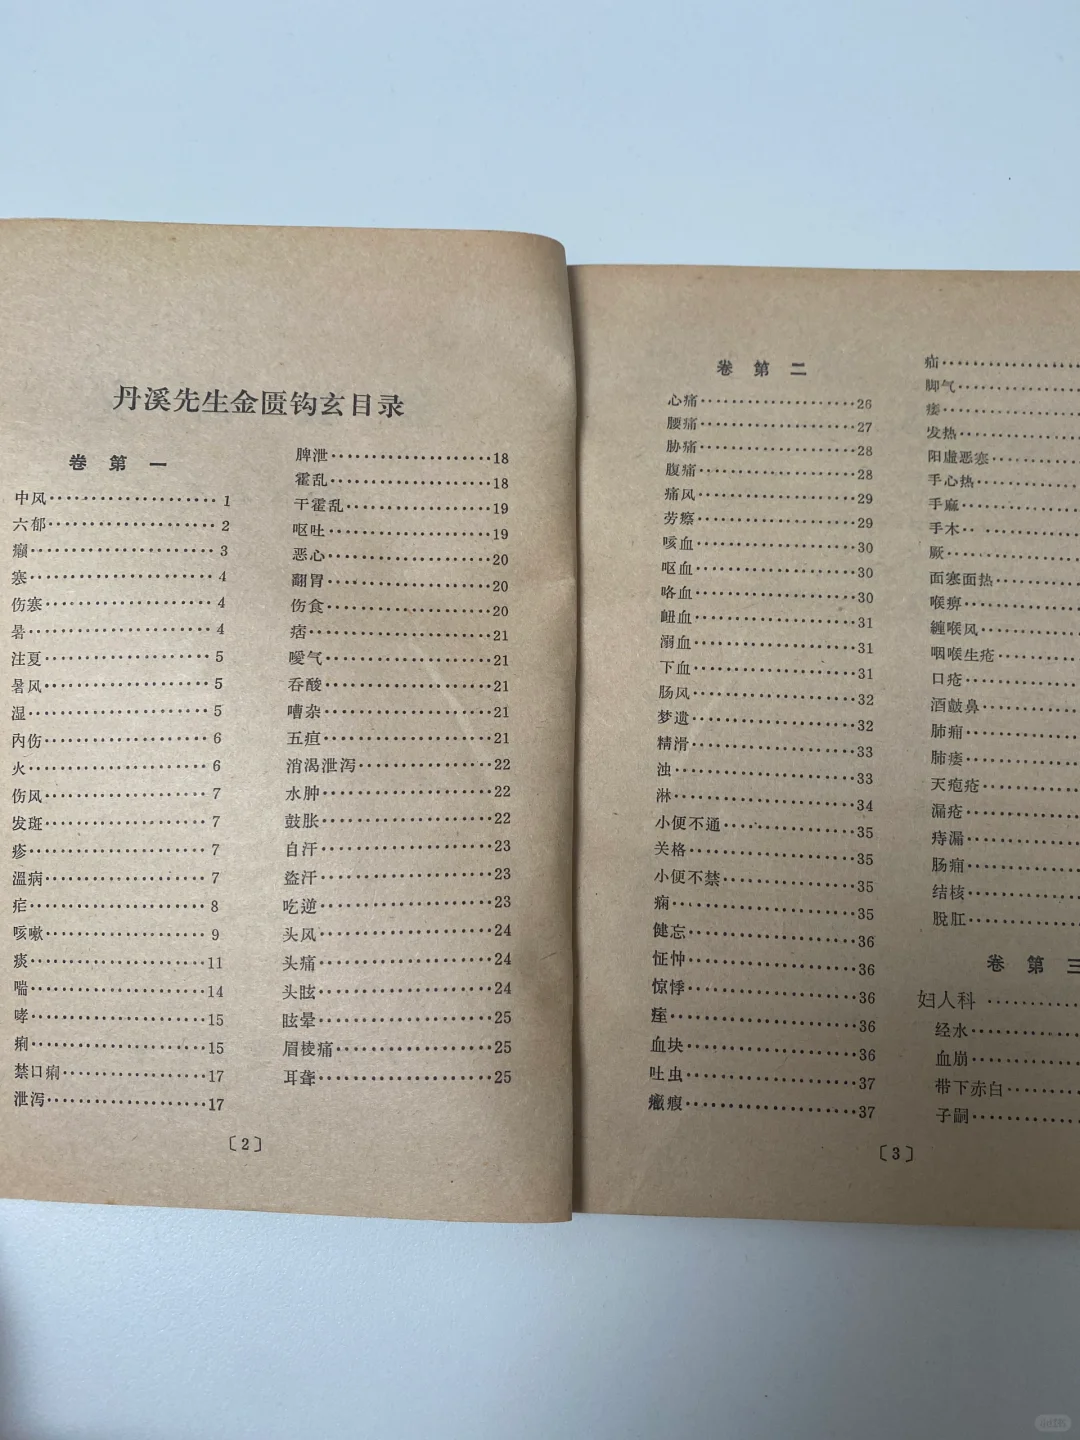 丹溪先生金匮钩玄目录
卷 第 一
中风…………………1
六郁…………………2
癫…………………3
寒…………………4
伤寒…………………4
暑…………………4
注夏…………………5
暑风…………………5
湿…………………5
内伤…………………6
火…………………6
伤风…………………7
发斑…………………7
疹…………………7
溫病…………………7
疟…………………8
咳嗽…………………9
痰…………………11
喘…………………14
哮…………………15
痢…………………15
禁口痢…………………17
泄泻…………………17
脾泄…………………18
霍乱…………………18
干霍乱…………………19
呕吐…………………19
恶心…………………20
翻胃…………………20
伤食…………………20
痞…………………21
嗳气…………………21
吞酸…………………21
嘈杂…………………21
五疸…………………21
消渴泄泻…………………22
水肿…………………22
鼓胀…………………22
自汗…………………23
盜汗…………………23
吃逆…………………23
头风…………………24
头痛…………………24
头眩…………………24
眩晕…………………25
眉棱痛…………………25
耳聋…………………25
〔2〕
卷 第 二
心痛…………………26
腰痛…………………27
胁痛…………………28
腹痛…………………28
痛风…………………29
劳瘵…………………29
咳血…………………30
呕血…………………30
咯血…………………30
衄血…………………31
溺血…………………31
下血…………………31
肠风…………………32
梦遗…………………32
精滑…………………33
浊…………………33
淋…………………34
小便不通…………………35
关格…………………35
小便不禁…………………35
痫…………………35
健忘…………………36
怔忡…………………36
惊悸…………………36
痓…………………36
血块…………………36
吐虫…………………37
癥瘕…………………37
疝…………………
脚气…………………
痿…………………
发热…………………
阳虚恶寒…………………
手心热…………………
手麻…………………
手木…………………
厥…………………
面寒面热…………………
喉痹…………………
缠喉风…………………
咽喉生疮…………………
口疮…………………
酒皶鼻…………………
肺痈…………………
肺痿…………………
天疱疮…………………
漏疮…………………
痔漏…………………
肠痈…………………
结核…………………
脱肛…………………
卷 第 三
妇人科…………………
经水…………………
血崩…………………
带下赤白…………………
子嗣…………………
〔3〕